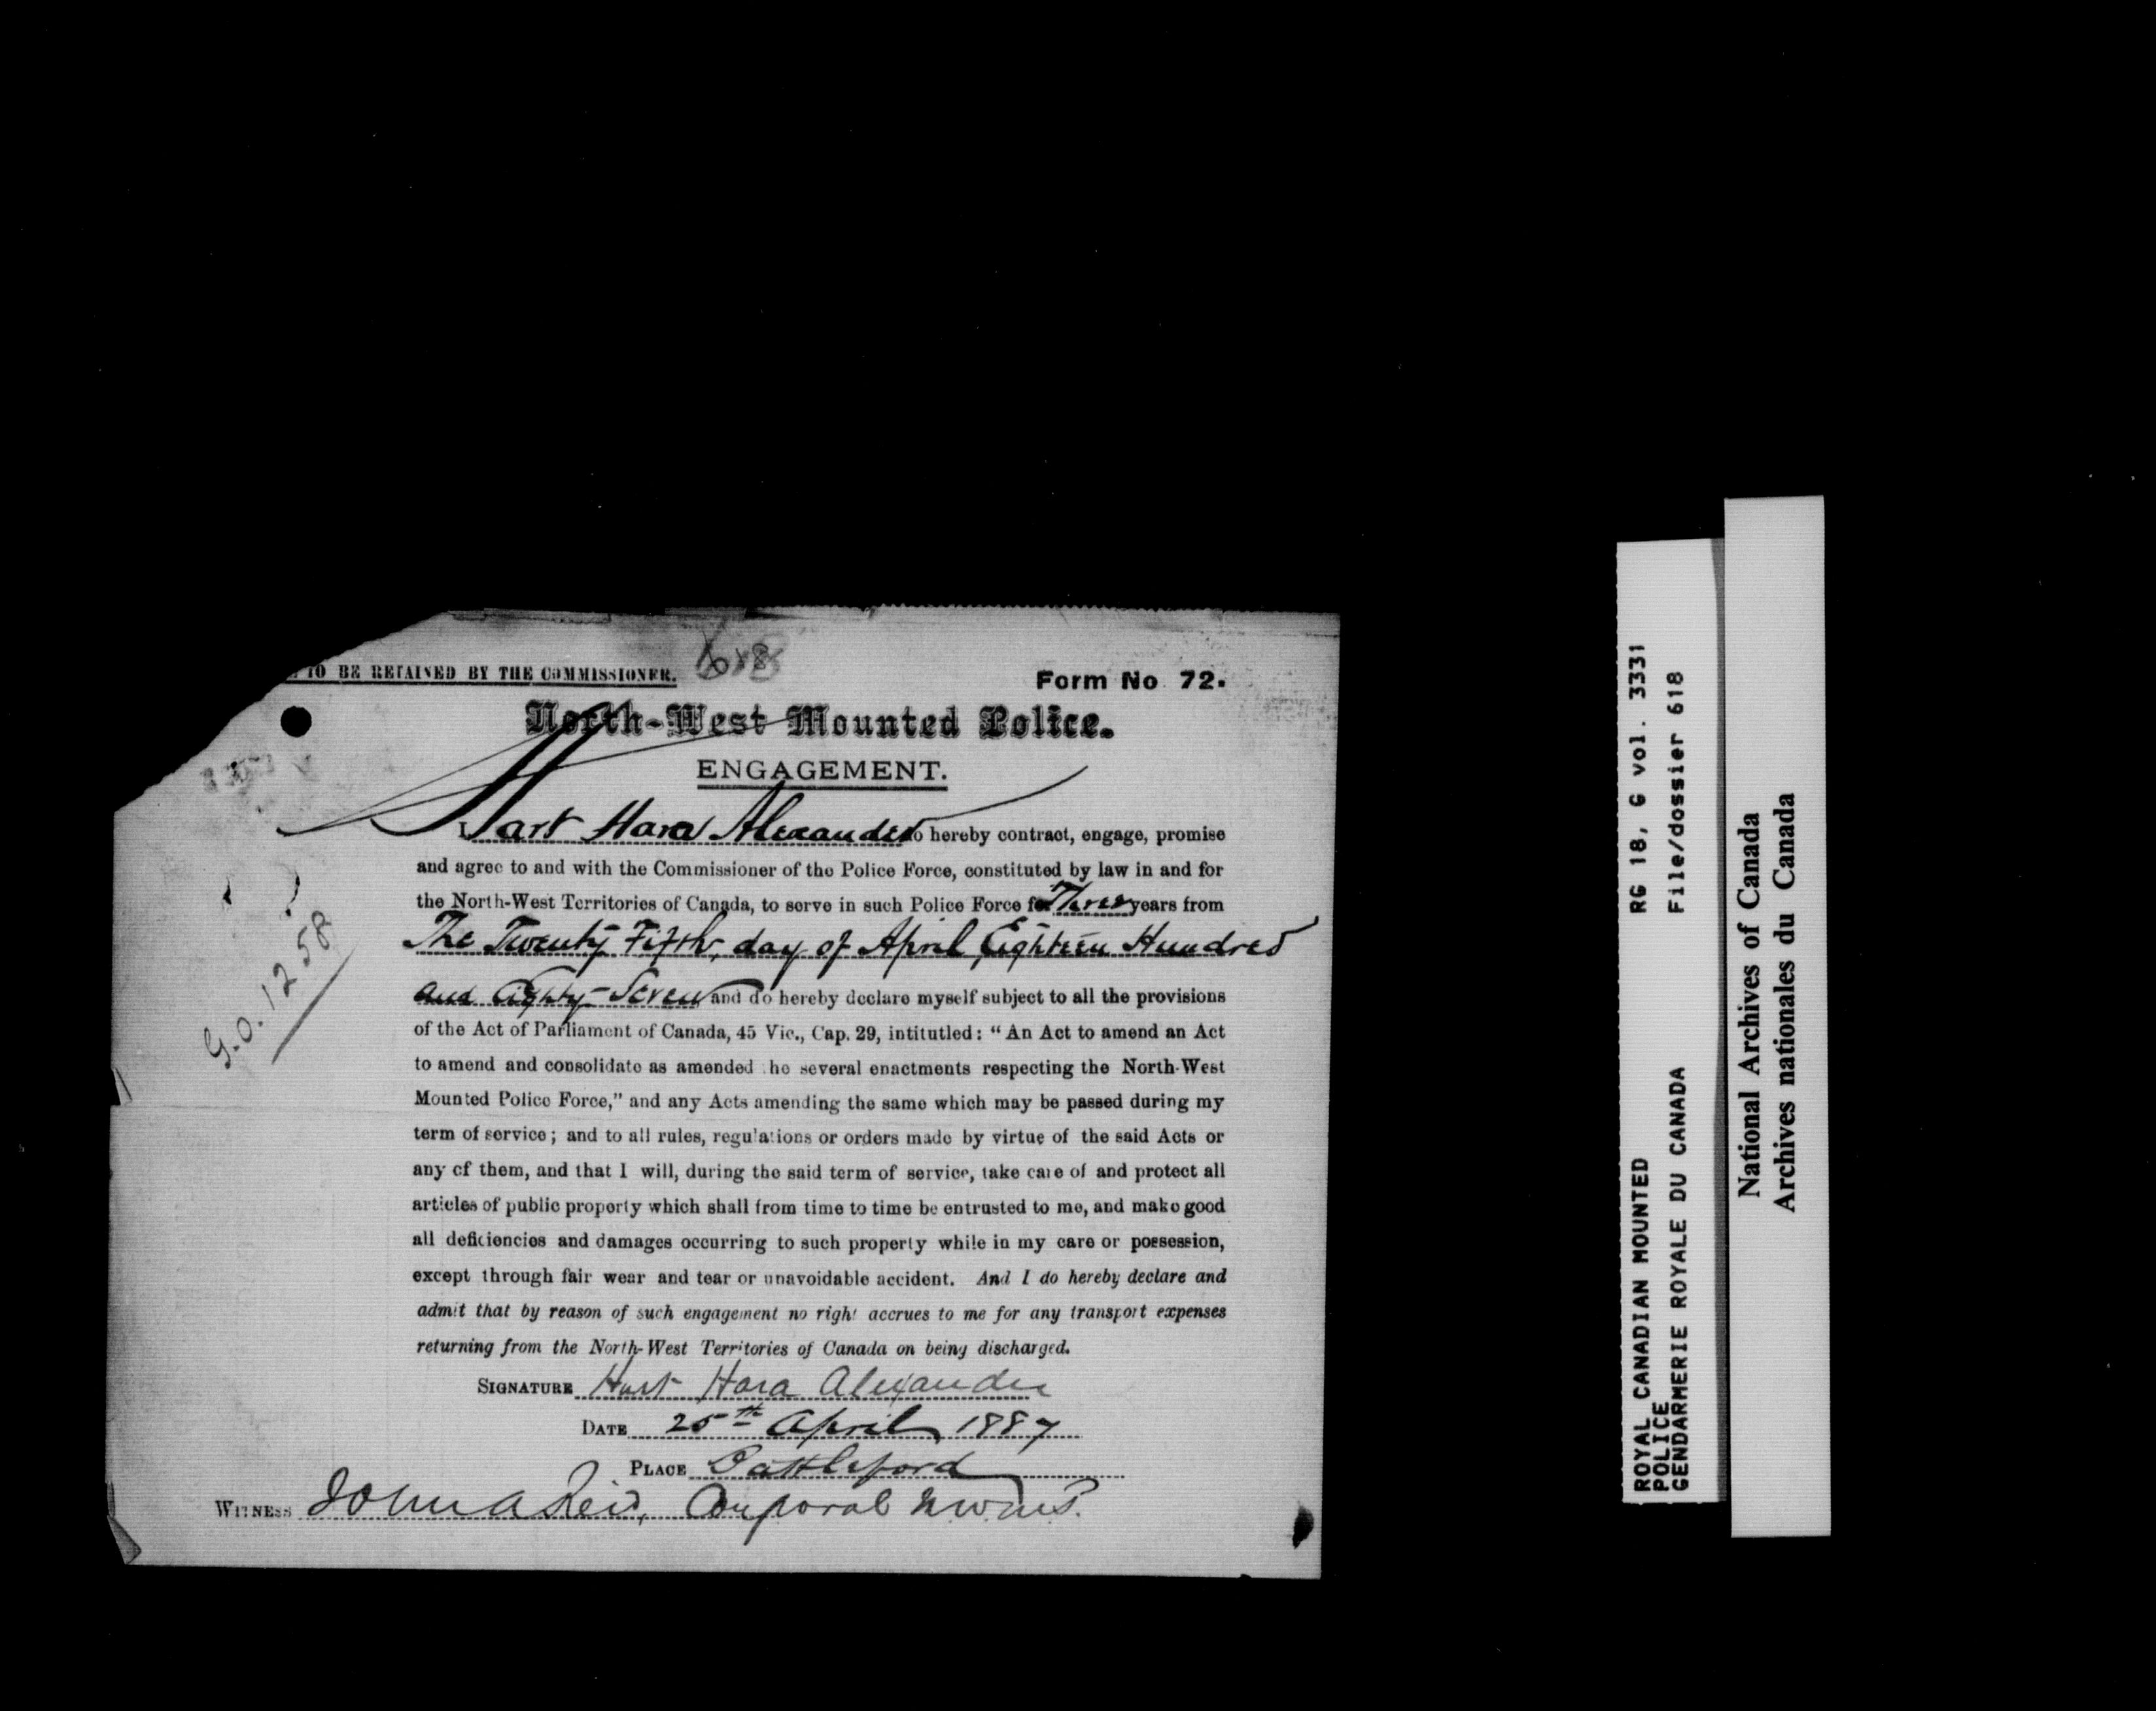 TO BE RETAINED BY THE COMMISSIONER.
618
Form No 72.
North-West Mounted Police.
ENGAGEMENT.
I, Hart Hara Alexander do hereby contract, engage, promise
and agree to and with the Commissioner of the Police Force, constituted by law in and for
the North-West Territories of Canada, to serve in such Police Force for Three years from
The Twenty Fifth, day of April Eighteen Hundred
and Eighty-Seven and do hereby declare myself subject to all the provisions
of the Act of Parliament of Canada, 45 Vic., Cap. 29, intitutled: "An Act to amend an Act
to amend and consolidate as amended he several enactments respecting the North-West
Mounted Police Force," and any Acts amending the same which may be passed during my
term of service; and to all rules, regulations or orders made by virtue of the said Acts or
any of them, and that I will, during the said term of service, take care of and protect all
articles of public property which shall from time to time be entrusted to me, and make good
all deficiencies and damages occurring to such property while in my care or possession,
except through fair wear and tear or unavoidable accident. And I do hereby declare and
admit that by reason of such engagement no right accrues to me for any transport expenses
returning from the North-West Territories of Canada on being discharged.
SIGNATURE Hart Hara Alexander
DATE 25th April 1887
PLACE Battleford
WITNESS John A Reid, Corporal N.W.M.P.
G.O. 1258
ROYAL CANADIAN MOUNTED RG 18, G vol. 3331
POLICE
GENDARMERIE ROYALE DU CANADA File/dossier 618
National Archives of Canada
Archives nationales du Canada